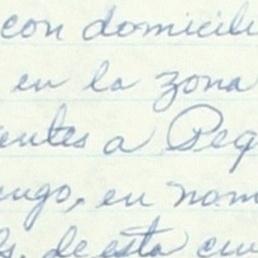 con domicili
en la zona
entes a Peq
engo, en nom
s, de esta ciu